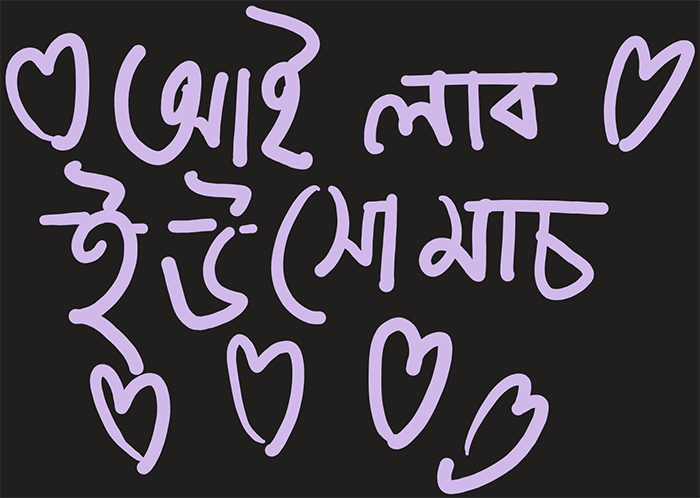 আই লাব
ইউ সো মাচ